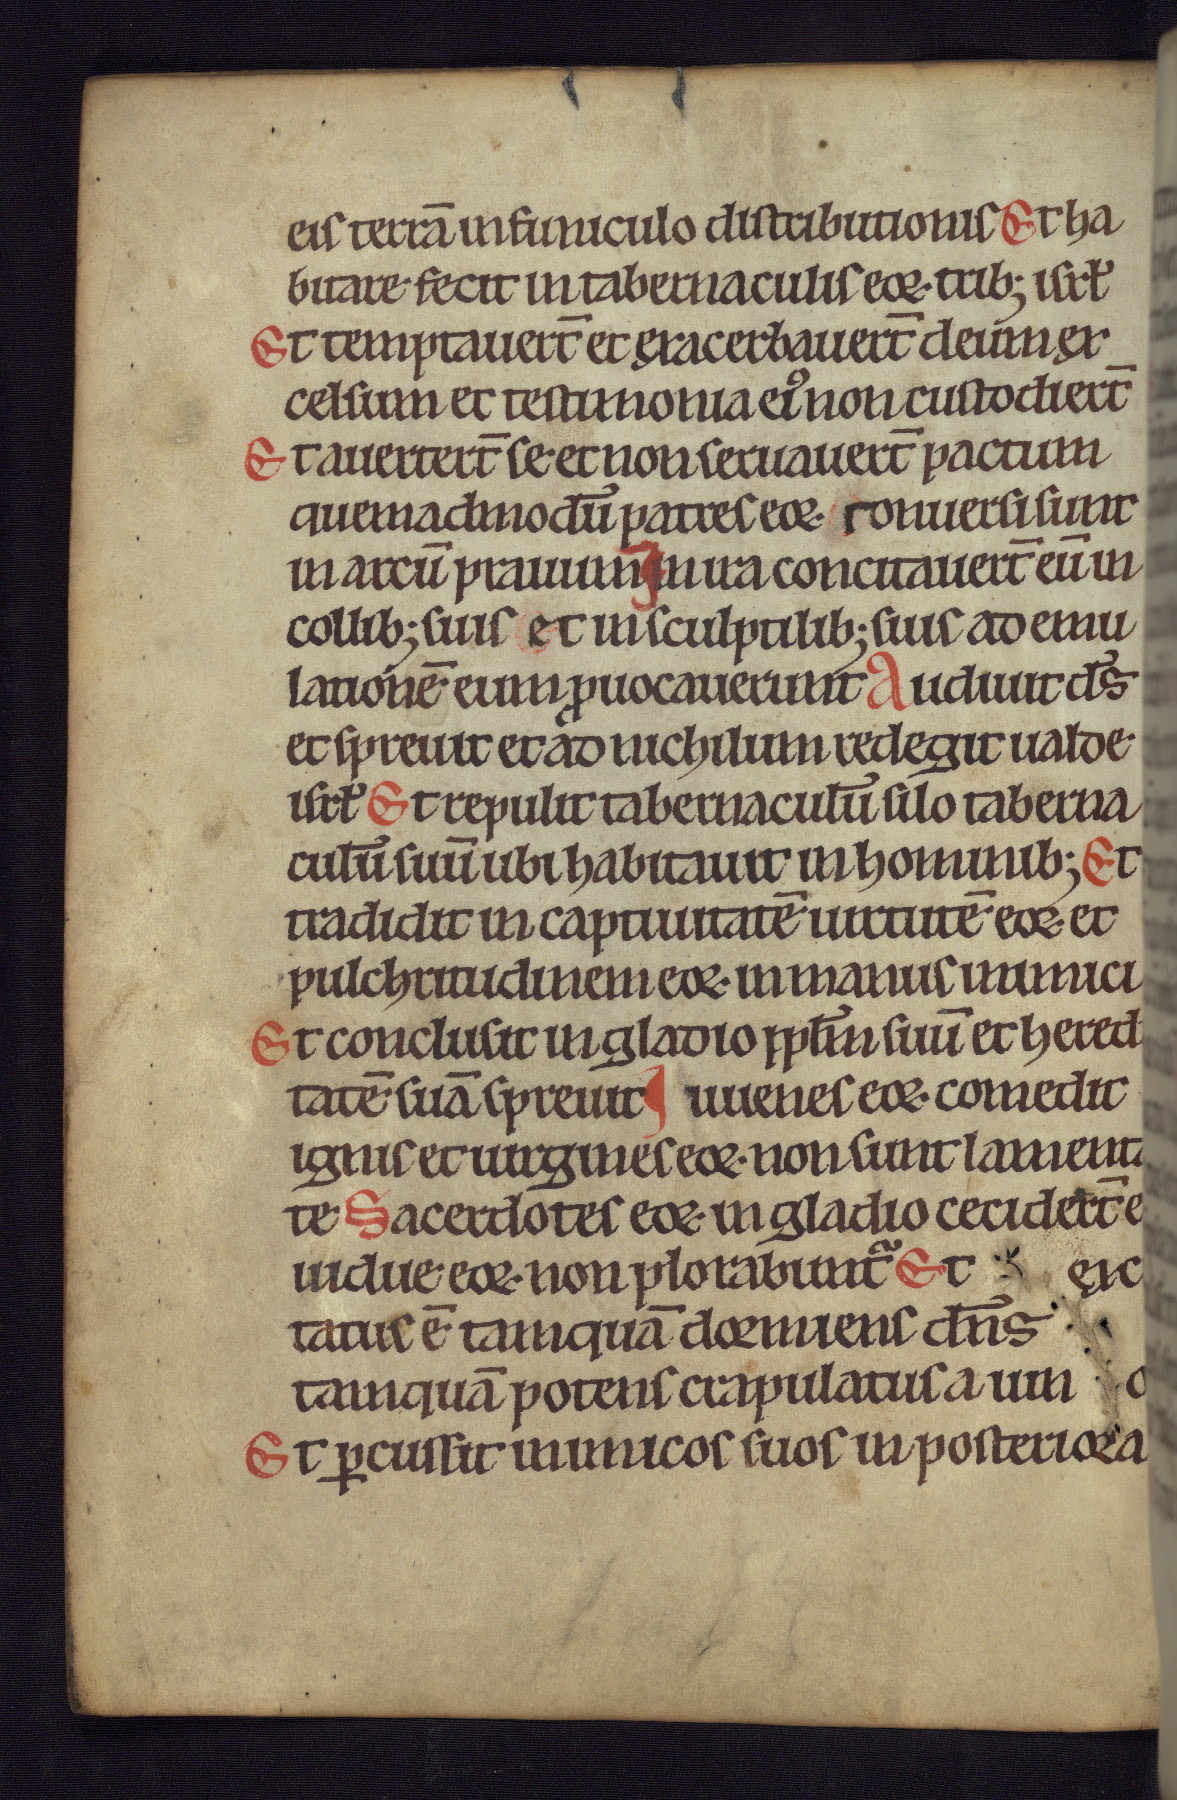 eis terrā in funiculo distributionis Et ha
bitare fecit in tabernaculis eoꝝ trib; isrł
Et temptauert̄ et exacerbauert̄ deum ex
celsum et testimonia eiꝰ non custodiert̄
Et auertert̄ se et non seruauert̄ pactum
quemadmodū patres eoꝝ conuersi sunt
in arcū prauum̄ In ira concitauert̄ eū in
collib; suis et in sculptilib; suis ad emu
lationē eum ꝓuocauerunt Audiuit ds̄
et spreuit et ad nichilum redegit ualde
isrł Et repulit tabernaculū silo taberna
culū suū ubi habitauit in hominib; Et
tradidit in captiuitatē uirtutē eoꝝ et
pulchritudinem eoꝝ in manus inimici
Et conclusit in gladio ppłm suū et heredi
tatē suā spreuit Iuuenes eoꝝ comedit
ignis et uirgines eoꝝ non sunt lamenta
te Sacerdotes eoꝝ in gladio cecidert̄ e
uidue eoꝝ non plorabunt̃ Et exc
tatus ē tamquā dormiens dn̄s
tamquā potens crapulatus a uin o
Et ꝑcussit inimicos suos in posteriora